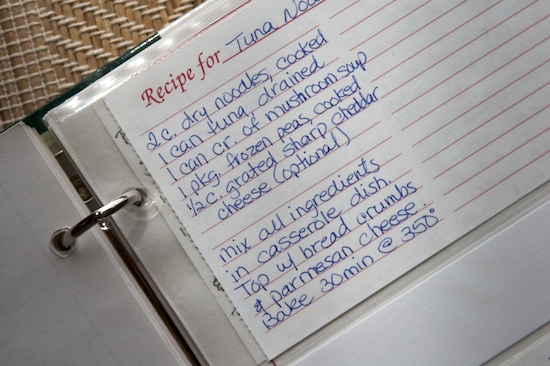 Recipe for Tuna
2 c. dry noodles, cooked
1 can tuna, drained
1 can cr. of mushroom soup
1 pkg. frozen peas, cooked
1/2 c. grated sharp cheddar
cheese (optional)
mix all ingredients
in casserole dish.
Top w/ bread crumbs
& parmesan cheese.
Bake 30min @ 350°